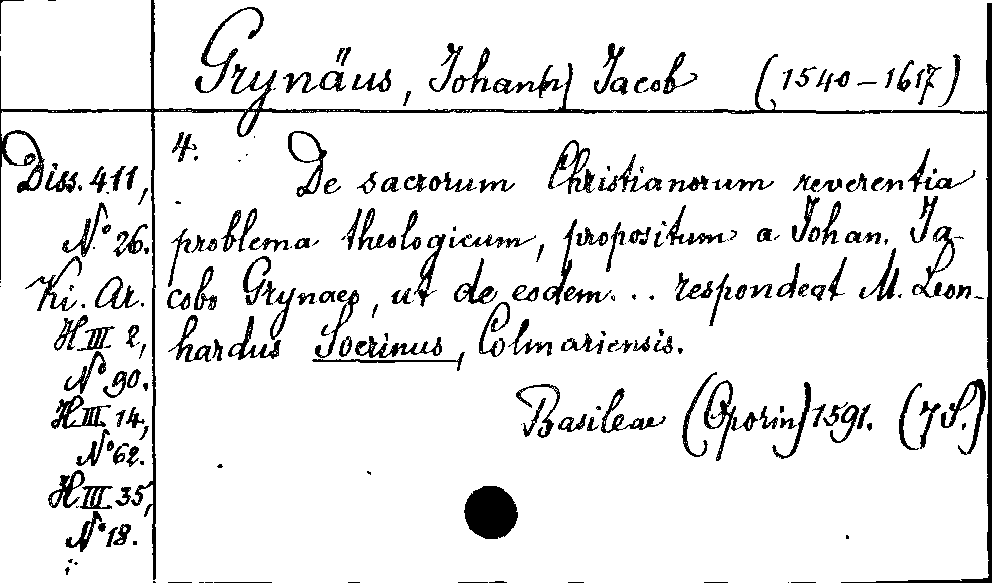 Grynäus, Johan(n) Jacob (1540–1617)
4.
Diss. 411,
N° 26.
Ki. Ar.
H III 2,
N° 90.
H III 14,
N° 62.
H III 35,
N° 18.
De sacrorum Christianorum reverentia
problema theologicum, propositum a Johan. Ja-
cobo Grynaeo, ut de eodem... respondeat M. Leon-
hardus Socrinus, Colmariensis.
Basileae (Oporin) 1591. (7 S.)